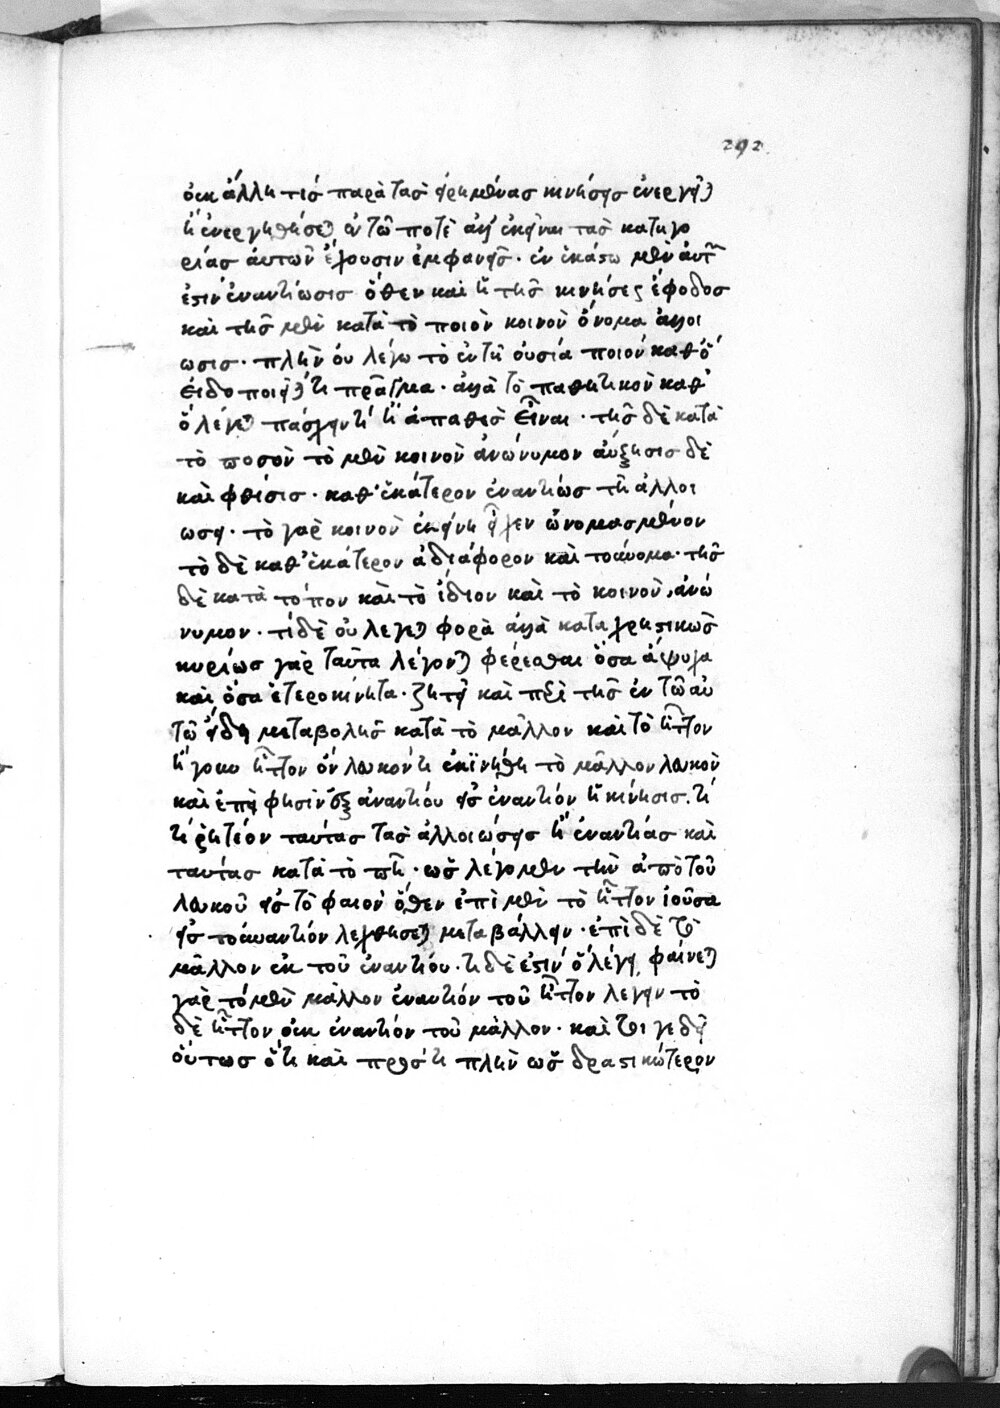 292
οὐκ ἄλλη τις παρὰ τὰς εἰρημένας κινήσεις ἐνεργεῖται
ἢ ἐνεργηθήσεται ἐν τῶ ποτὲ ἀλλ' ἐκεῖναι τὰς κατηγο
ρίας αὐτῶν ἔχουσιν ἐμφανεῖς· ἐν ἑκάστω μὲν αὐτῶν
ἐστιν ἐναντίωσις ὅθεν καὶ ἡ τῆς κινήσεως ἔφοδος
καὶ τῆς μὲν κατὰ τὸ ποιὸν κοινὸν ὄνομα ἀλλοι
ωσις· πλὴν οὐ λέγω τὸ ἐν τῆ οὐσία ποιὸν καθ' ὃ
εἰδοποιεῖται τι πρᾶγμα· ἀλλὰ τὸ παθητικὸν καθ'
ὃ λέγεται πάσχειν τὶ ἢ ἀπαθὲς εἶναι· τῆς δὲ κατὰ
τὸ ποσὸν τὸ μὲν κοινὸν ἀνώνυμον αὔξησις δὲ
καὶ φθίσις· καθ' ἑκάτερον ἐναντίως τῆ ἀλλοι
ωσει· τὸ γὰρ κοινὸν ἐκείνη εἶχεν ὠνομασμένον
τὸ δὲ καθ' ἑκάτερον ἀδιάφορον καὶ τοὔνομα· τῆς
δὲ κατὰ τόπον καὶ τὸ ἴδιον καὶ τὸ κοινὸν, ἀνώ
νυμον· τί δὲ οὐ λέγεται φορὰ ἀλλὰ καταχρηστικῶς
κυρίως γὰρ ταῦτα λέγονται φέρεσθαι ὅσα ἄψυχα
καὶ ὅσα ἑτεροκίνητα· ζητεῖ καὶ περὶ τῆς ἐν τῶ αὐ
τῶ εἴδει μεταβολῆς κατὰ τὸ μᾶλλον καὶ τὸ ἧττον
ἤγουν ἧττον ὂν λευκόν τι ἐκϊνήθη τὸ μᾶλλον λευκὸν
καὶ ἐπεὶ φησὶν ἐξ ἐναντίου εἰς ἐναντίον ἡ κίνησις. τί
τί ῥητέον ταύτας τὰς ἀλλοιώσεις ἢ ἐναντίας καὶ
ταύτας κατὰ τὸ πῆ· ὡς λέγομεν τὴν ἀπὸ τοῦ
λευκοῦ εἰς τὸ φαιὸν ὅθεν ἐπὶ μὲν τὸ ἧττον ἰοῦσα
εἰς τοὐναντίον λεχθήσεται μεταβάλλειν· ἐπὶ δὲ τὸ
μᾶλλον ἐκ τοῦ ἐναντίου· τι δὲ ἐστιν ὃ λέγει, φαίνεται
γὰρ τὸ μὲν μᾶλλον ἐναντίον τοῦ ἧττον λέγειν τὸ
δὲ ἧττον οὐκ ἐναντίον τοῦ μᾶλλον· καὶ
οὕτως ὅτι καὶ πλὴν ὡς δραστικώτερον